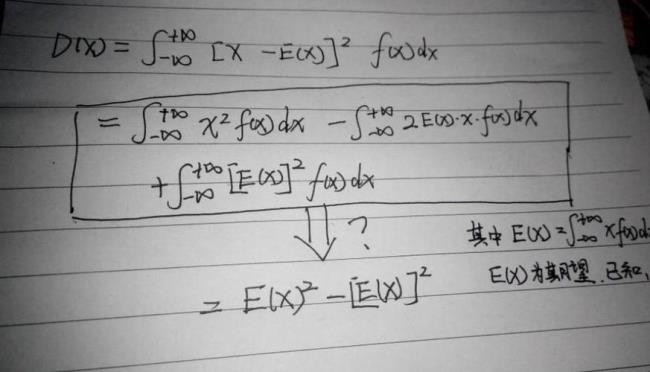 D(X) = ∫_{-∞}^{+∞} [X - E(X)]² f(x)dx
= ∫_{-∞}^{+∞} x² f(x)dx - ∫_{-∞}^{+∞} 2E(x)·x·f(x)dx
+ ∫_{-∞}^{+∞} [E(X)]² f(x)dx
?
其中 E(X) = ∫_{-∞}^{+∞} xf(x)d
E(X)为期望.已知,
= E(X)² - [E(X)]²